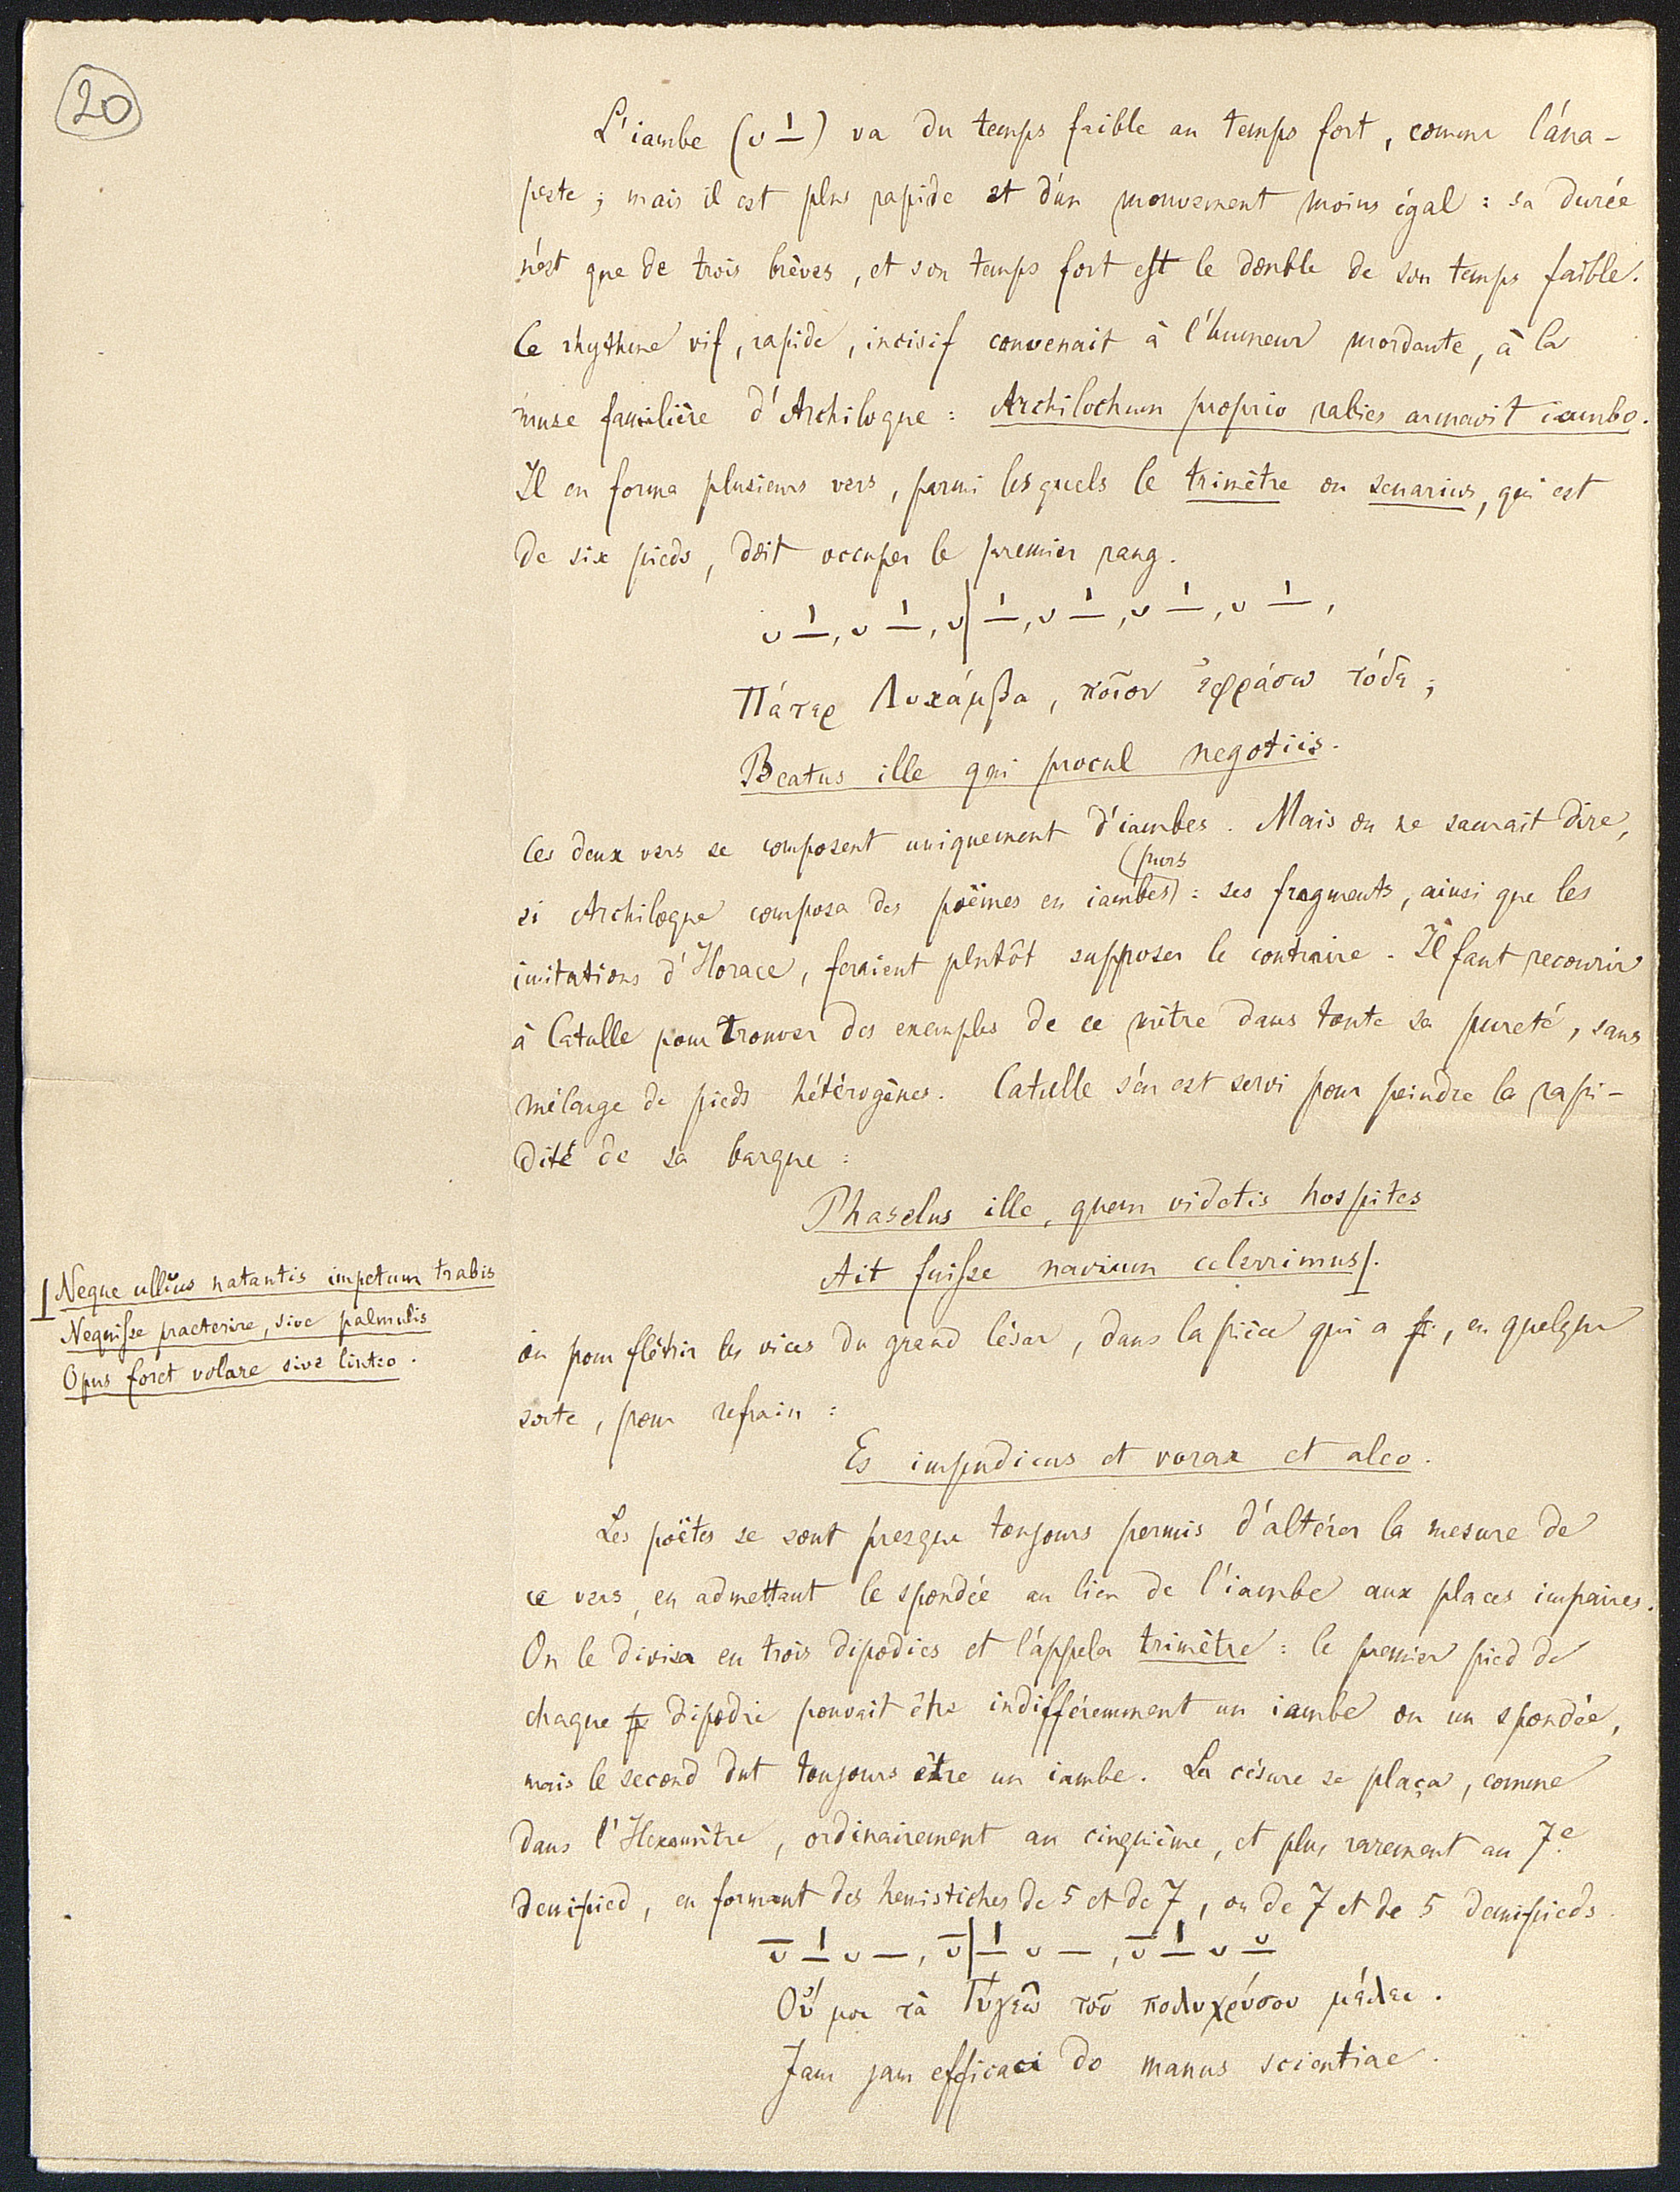 20
L'iambe (υ –́) va du temps faible au temps fort, comme l'ana-
peste ; mais il est plus rapide et d'un mouvement moins égal : sa durée
n'est que de trois brèves, et son temps fort est le double de son temps faible.
Ce rhythme vif, rapide, incisif convenait à l'humeur mordante, à la
muse familière d'Archiloque : Archilochum proprio rabies armavit iambo.
Il en forma plusieurs vers, parmi lesquels le trimètre ou senarius, qui est
de six pieds, doit occuper le premier rang.
υ –́, υ –́, υ | –́, υ –́, υ –́, υ –́,
Πάτερ Λυκάμβα, ποῖον ἐφράσω τόδε ;
Beatus ille qui procul negotiis.
Ces deux vers se composent uniquement d'iambes. Mais on ne saurait dire,
si Archiloque composa des poëmes en iambes purs : ses fragments, ainsi que les
imitations d'Horace, feraient plutôt supposer le contraire. Il faut recourir
à Catulle pour trouver des exemples de ce mètre dans toute sa pureté, sans
mélange de pieds hétérogènes. Catulle s'en est servi pour peindre la rapi-
dité de sa barque :
Phaselus ille, quem videtis hospites
Ait fuisse navium celerrimus.
Neque ullius natantis impetum trabis
Nequisse praeterire, sive palmulis
Opus foret volare sive linteo.
ou pour flétrir les vices du grand César, dans la pièce qui a, en quelque
sorte, pour refrain :
Es impudicus et vorax et aleo.
Les poëtes se sont presque toujours permis d'altérer la mesure de
ce vers, en admettant le spondée au lieu de l'iambe aux places impaires.
On le divisa en trois dipodies et l'appela trimètre : le premier pied de
chaque dipodie pouvait être indifféremment un iambe ou un spondée,
mais le second dut toujours être un iambe. La césure se plaça, comme
dans l'Hexamètre, ordinairement au cinquième, et plus rarement au 7e
demipied, en formant des hemistiches de 5 et de 7, ou de 7 et de 5 demipieds.
ῡ –́ υ –, ῡ | –́ υ –, ῡ –́ υ ῡ
Οὔ μοι τὰ Γύγεω τοῦ πολυχρύσου μέλει.
Jam jam efficaci do manus scientiae.